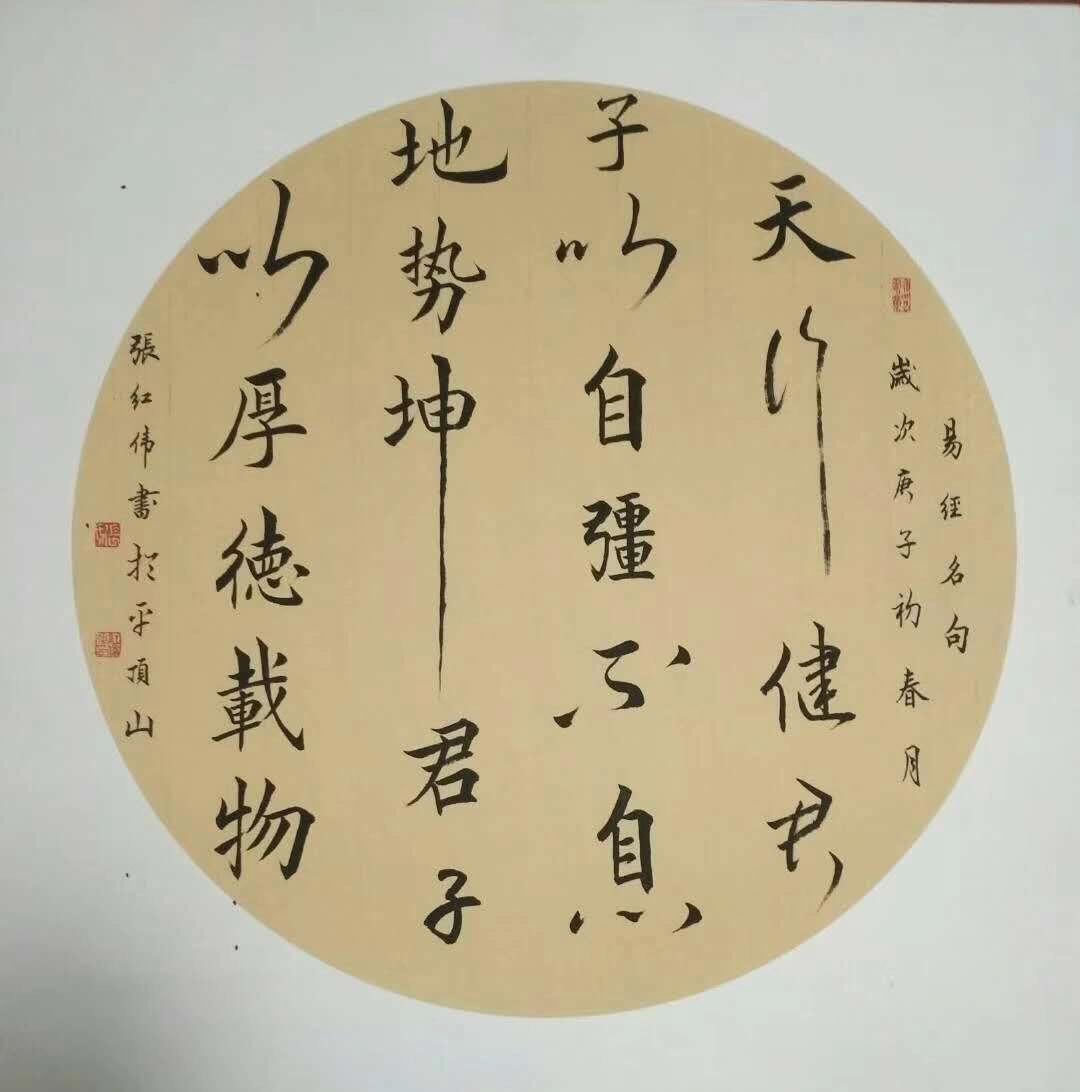 易經名句
歲次庚子初春月
天行健君
子以自彊不息
地势坤君子
以厚徳載物
張红伟書於平頂山